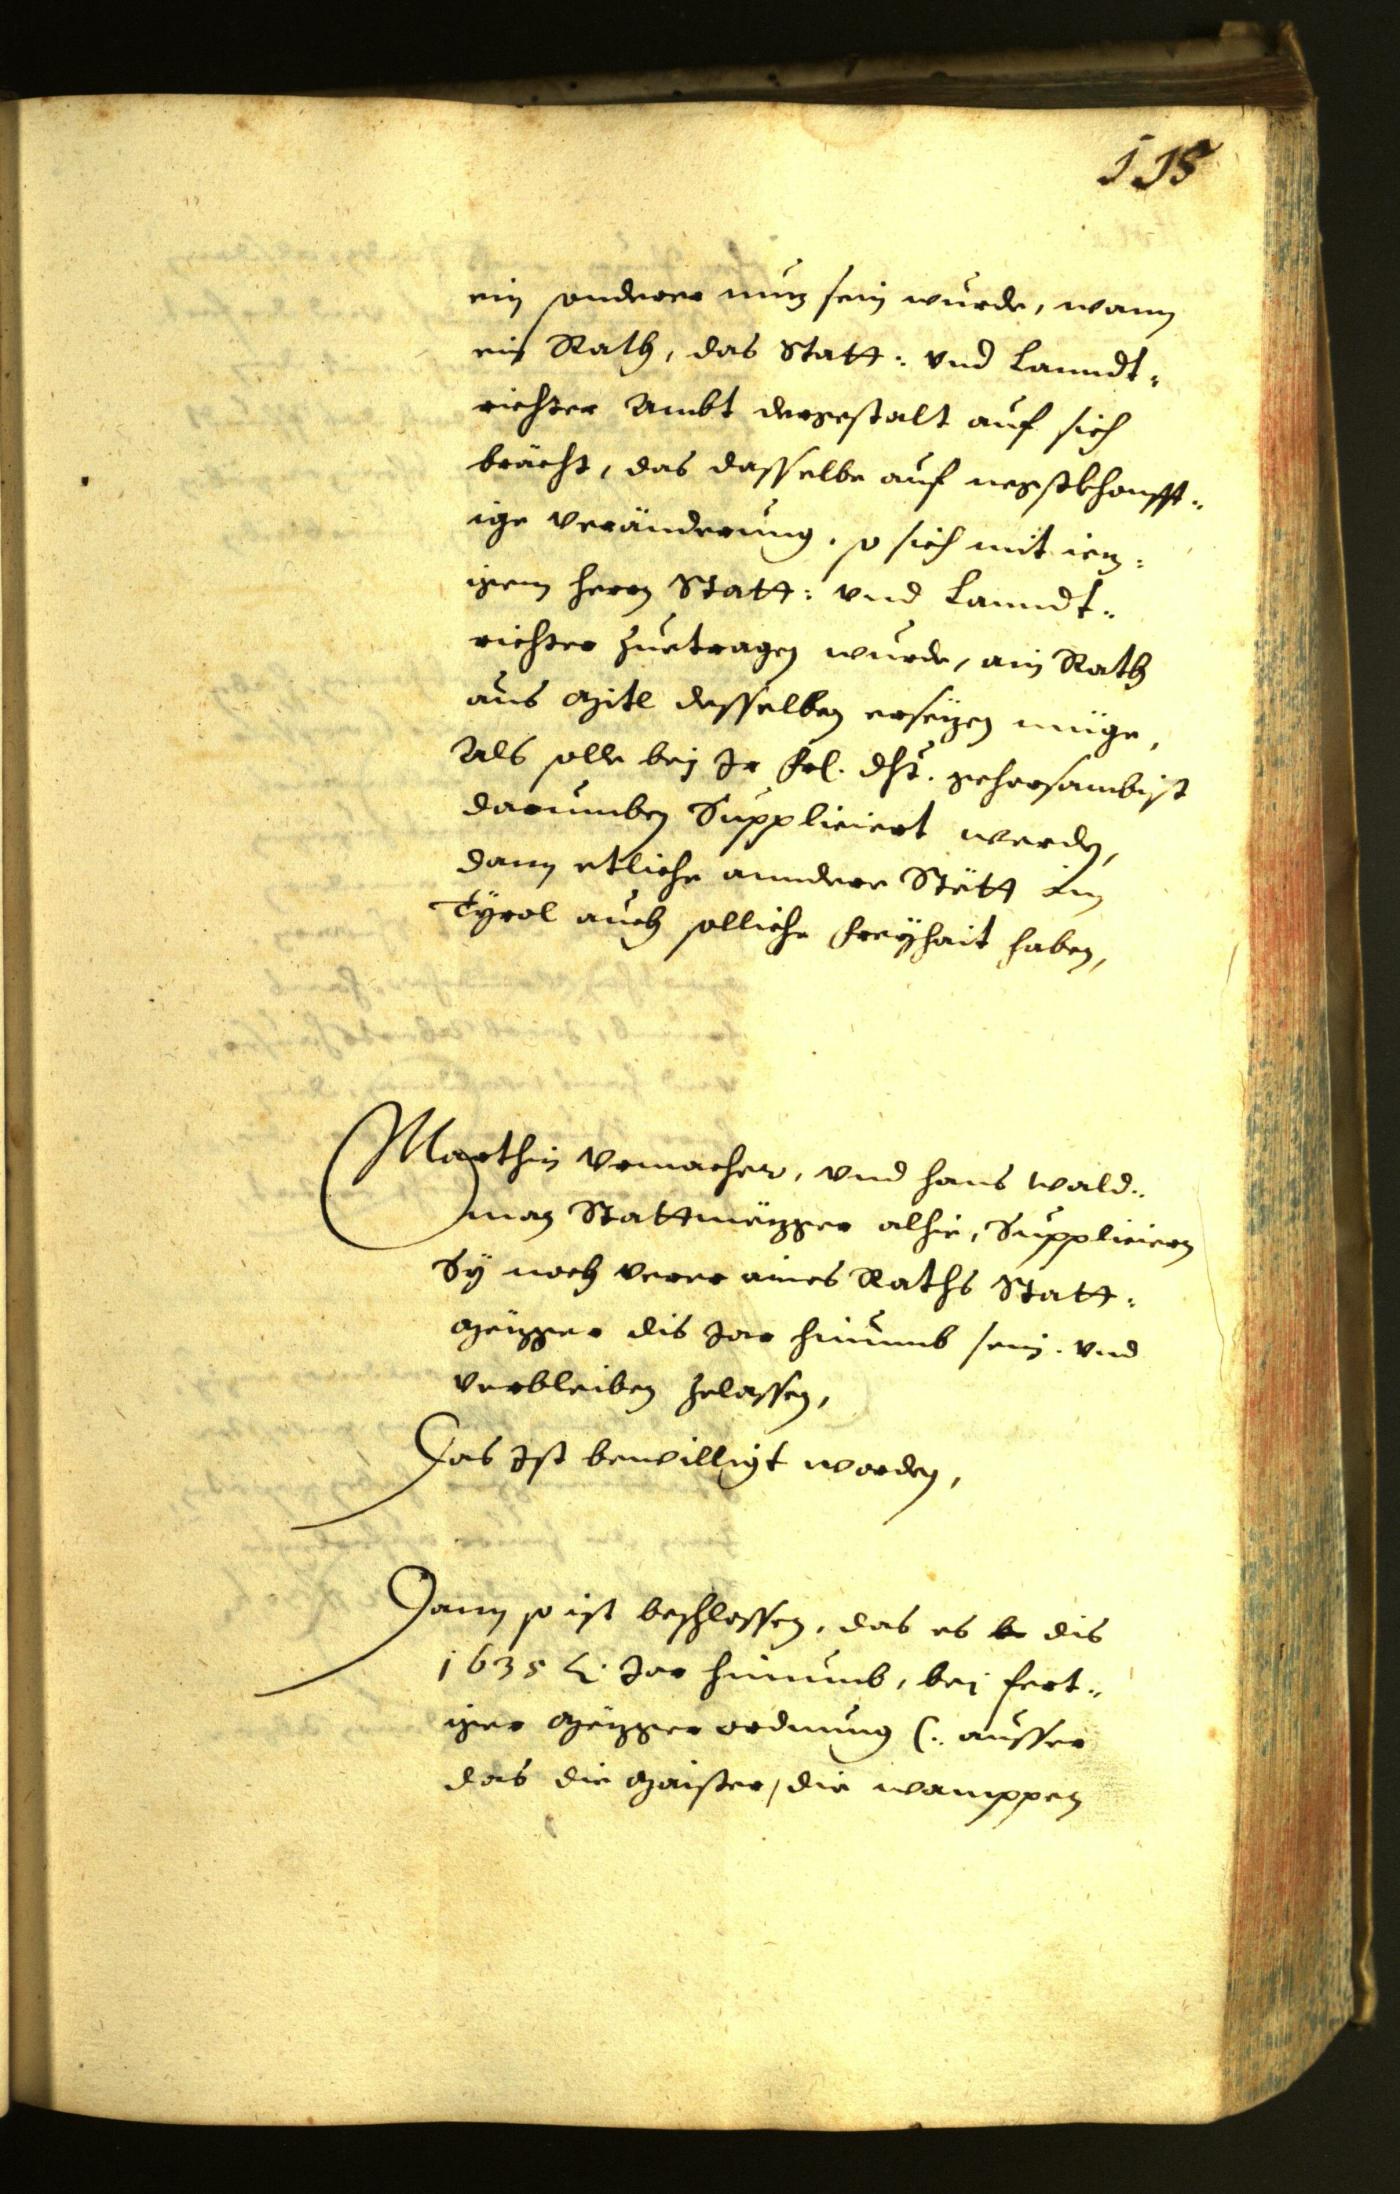 115
ein sonderer nuz sein wurde, wann
ein Rath, das Statt: vnd Lanndt„
richter Ambt dergestalt auf sich
brächt, das dasselbe auf negstkhonfft„
ige veränderung, so sich mit iez„
igem herrn Statt: vnd Lanndt„
richter zuetragen wurde, ain Rath
aus mitl desselben ersezen müge,
Als solle bej Ir frl. dht. gehorsambist
darumben Suppliciert werden,
dann etliche anndere Stätt in
Tyrol auch solliche freyhait haben,
Marthin Vrmacher, vnd hans wald„
man Stattmëzger alhie, Suppliciern
Sy noch verer aines Raths Statt„
mëzger dis Jar hinumb sein vnd
verbleiben zelassen,
Das Ist bewilligt worden,
Dann so ist beschlossen, das es dis
1635 Jar hinumb, bej fert„
iger mëzger ordnung (: ausser
das die maister, die wamppen